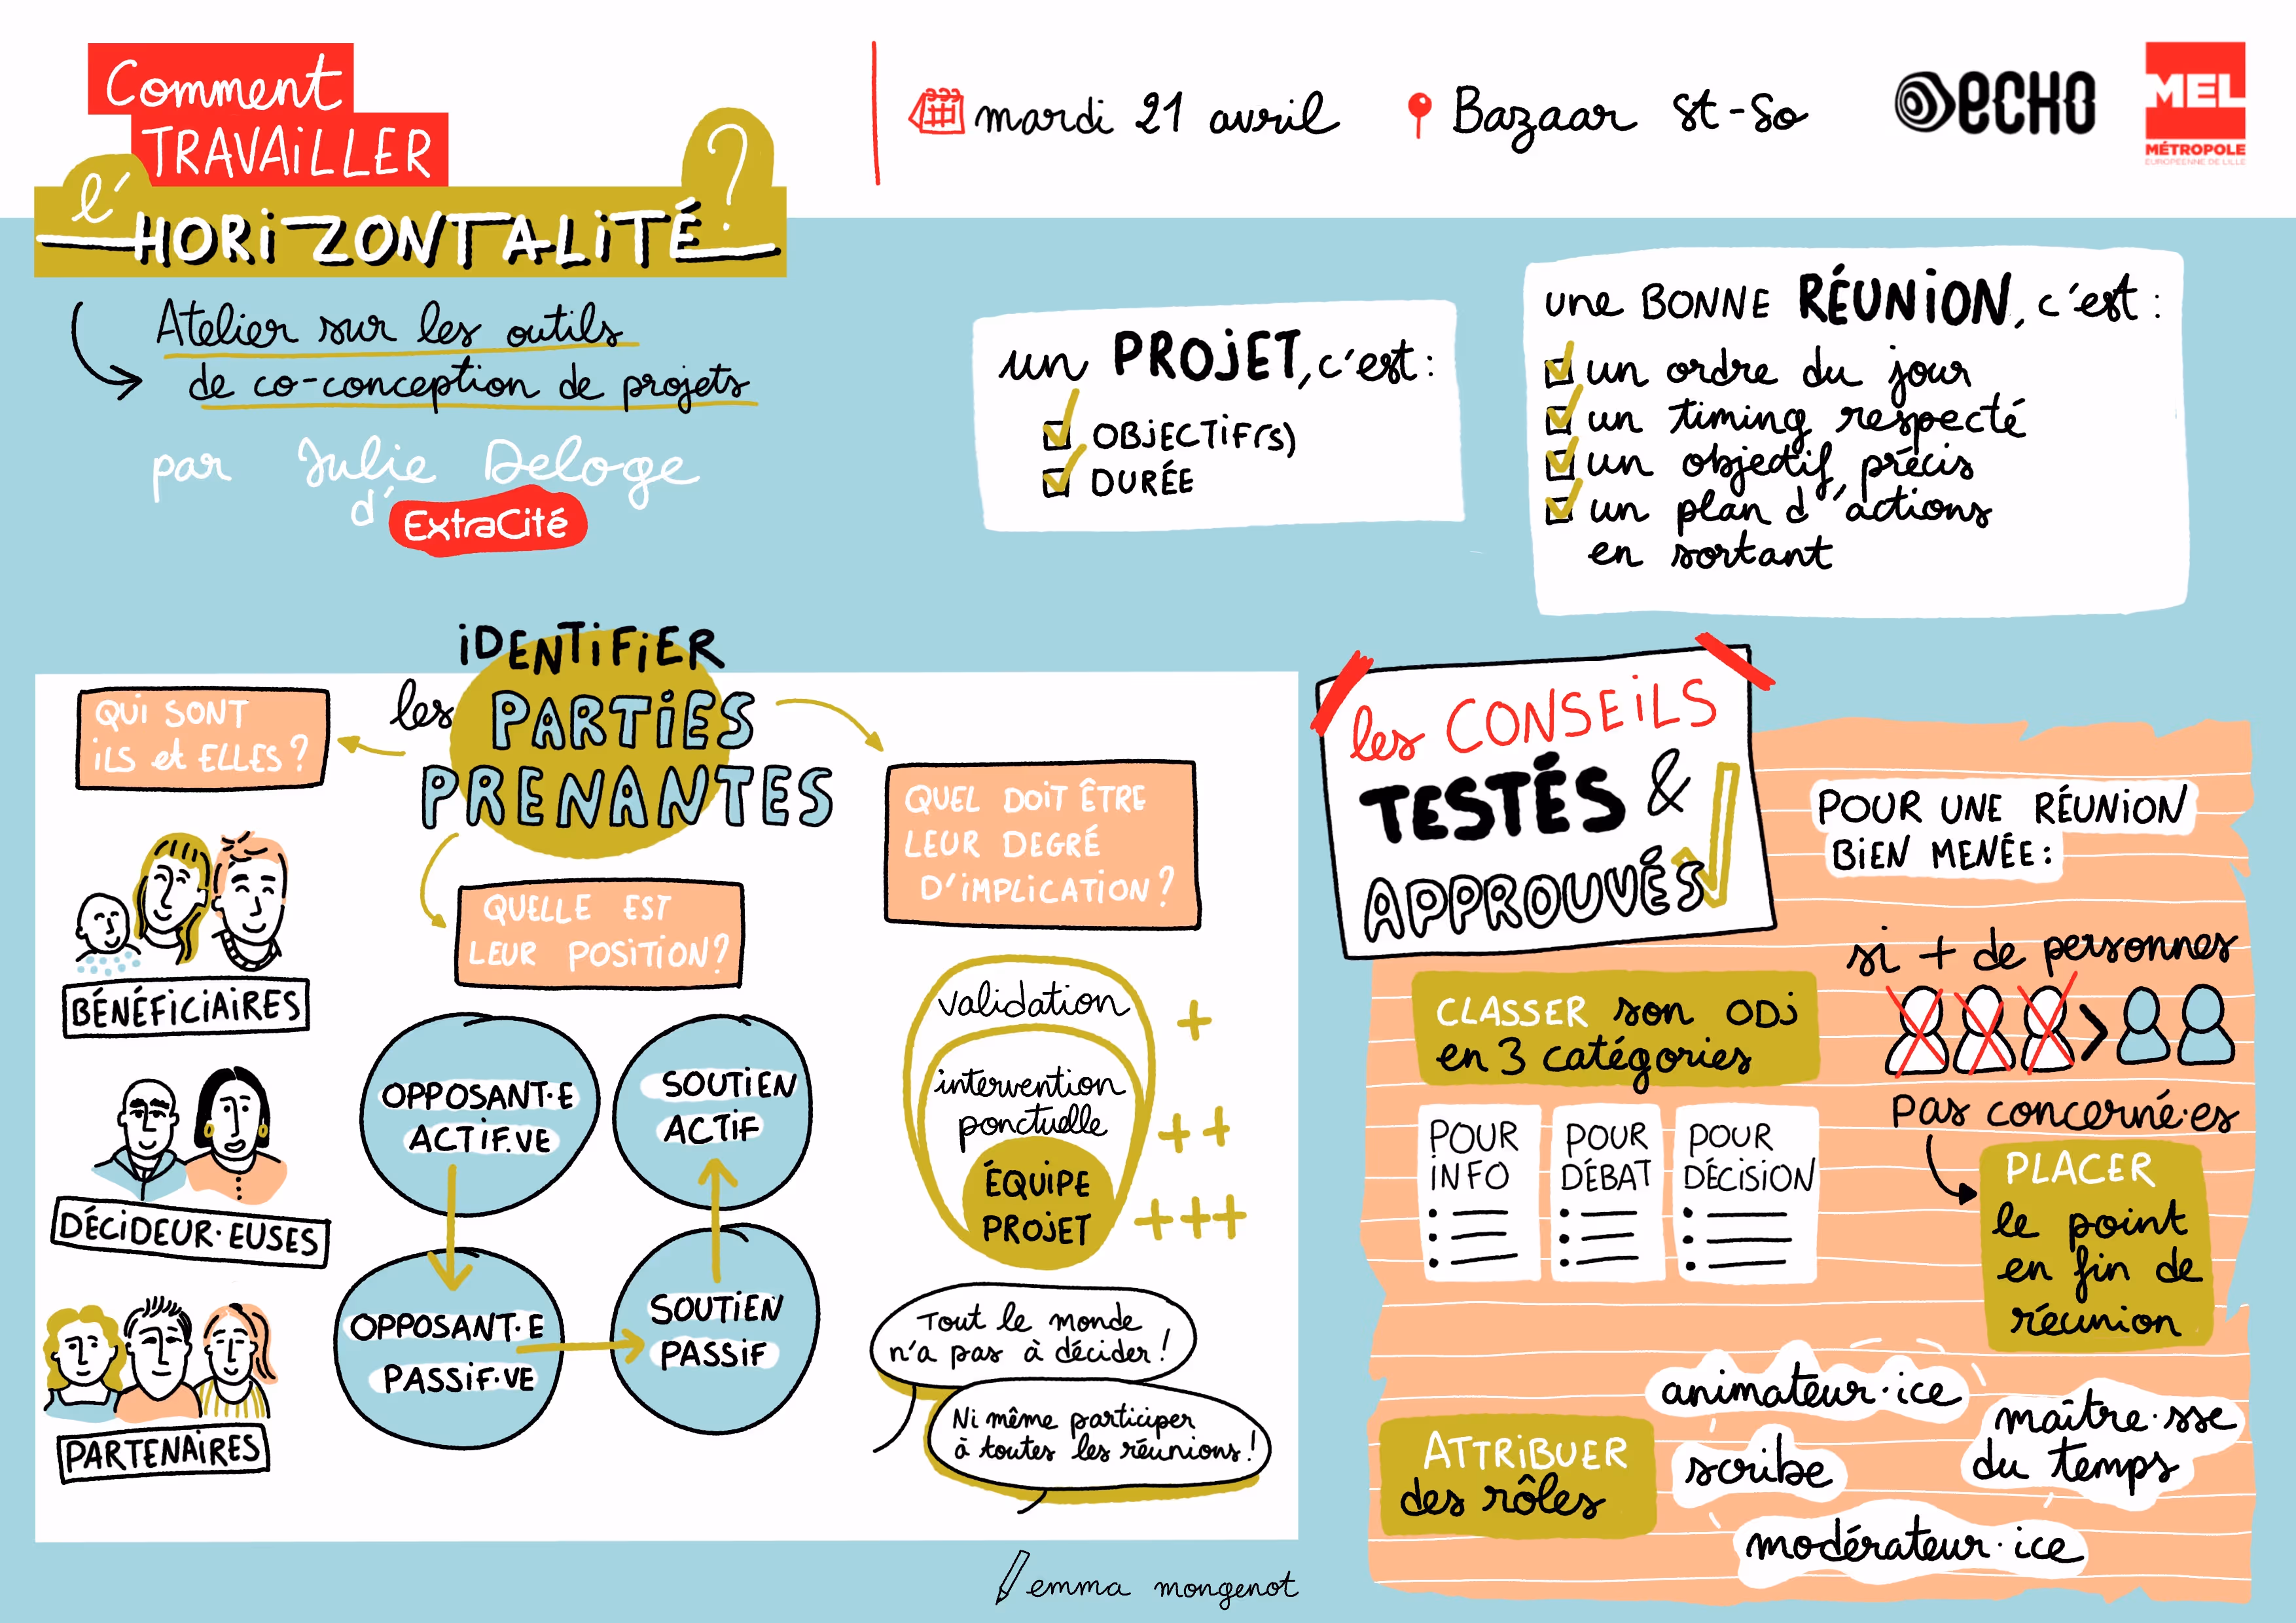 Comment
TRAVAiLLER
l'
HORiZONTALiTÉ ?
Atelier sur les outils
de co-conception de projets
par Julie Deloge
d'ExtraCité
mardi 21 avril
Bazaar St-So
ECHO
MEL
MÉTROPOLE
EUROPÉENNE DE LILLE
un PROJET, c'est :
OBJECTiF(S)
DURÉE
une BONNE RÉUNiON, c'est :
un ordre du jour
un timing respecté
un objectif précis
un plan d'actions
en sortant
iDENTiFiER
les PARTiES
PRENANTES
QUi SONT
iLS et ELLES ?
BÉNÉFiCiAiRES
DÉCiDEUR·EUSES
PARTENAiRES
QUELLE EST
LEUR POSiTiON ?
OPPOSANT·E
ACTiF.VE
SOUTiEN
ACTiF
OPPOSANT·E
PASSiF·VE
SOUTiEN
PASSiF
QUEL DOiT ÊTRE
LEUR DEGRÉ
D'iMPLiCATiON ?
validation
+
intervention
ponctuelle
++
ÉQUiPE
PROJET
+++
Tout le monde
n'a pas à décider !
Ni même participer
à toutes les réunions !
les CONSEiLS
TESTÉS &
APPROUVÉS
POUR UNE RÉUNiON
BiEN MENÉE :
CLASSER son ODj
en 3 catégories
POUR
iNFO
POUR
DÉBAT
POUR
DÉCiSiON
si + de personnes
>
pas concerné·es
PLACER
le point
en fin de
réunion
ATTRiBUER
des rôles
animateur·ice
scribe
maître·sse
du temps
modérateur·ice
emma mongenot